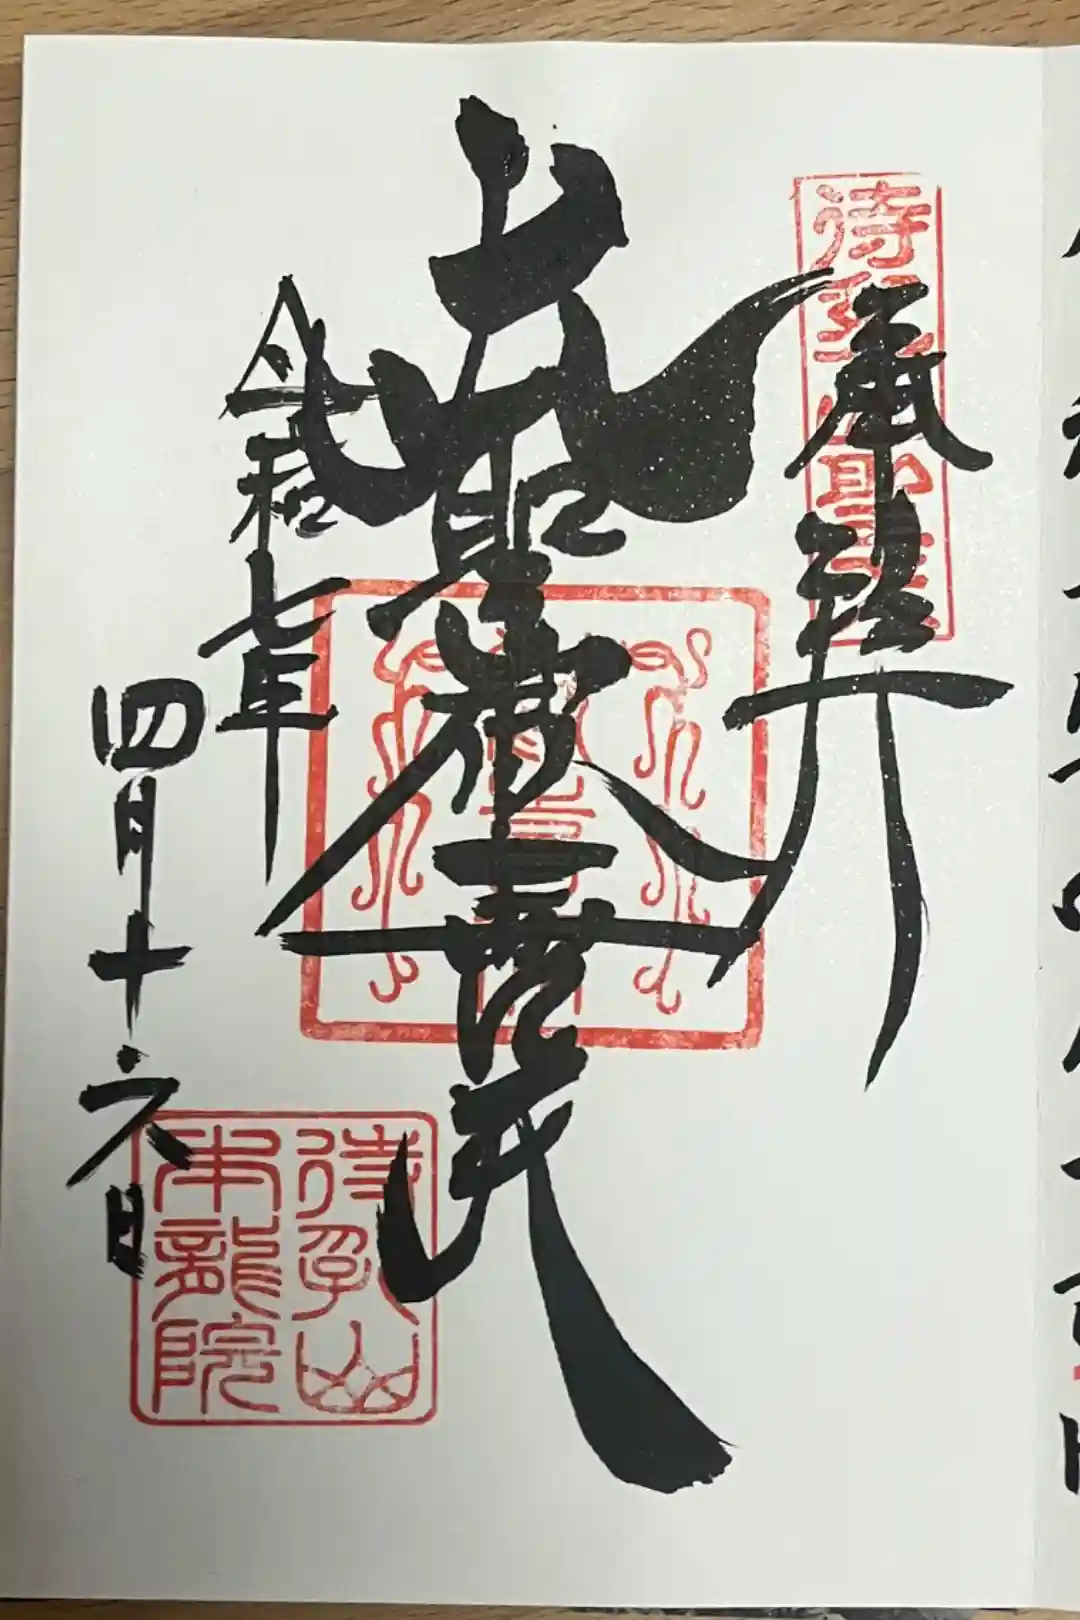 奉拝
待乳山聖天
大聖歓喜天
令和七年
四月十六日
待乳山
本龍院